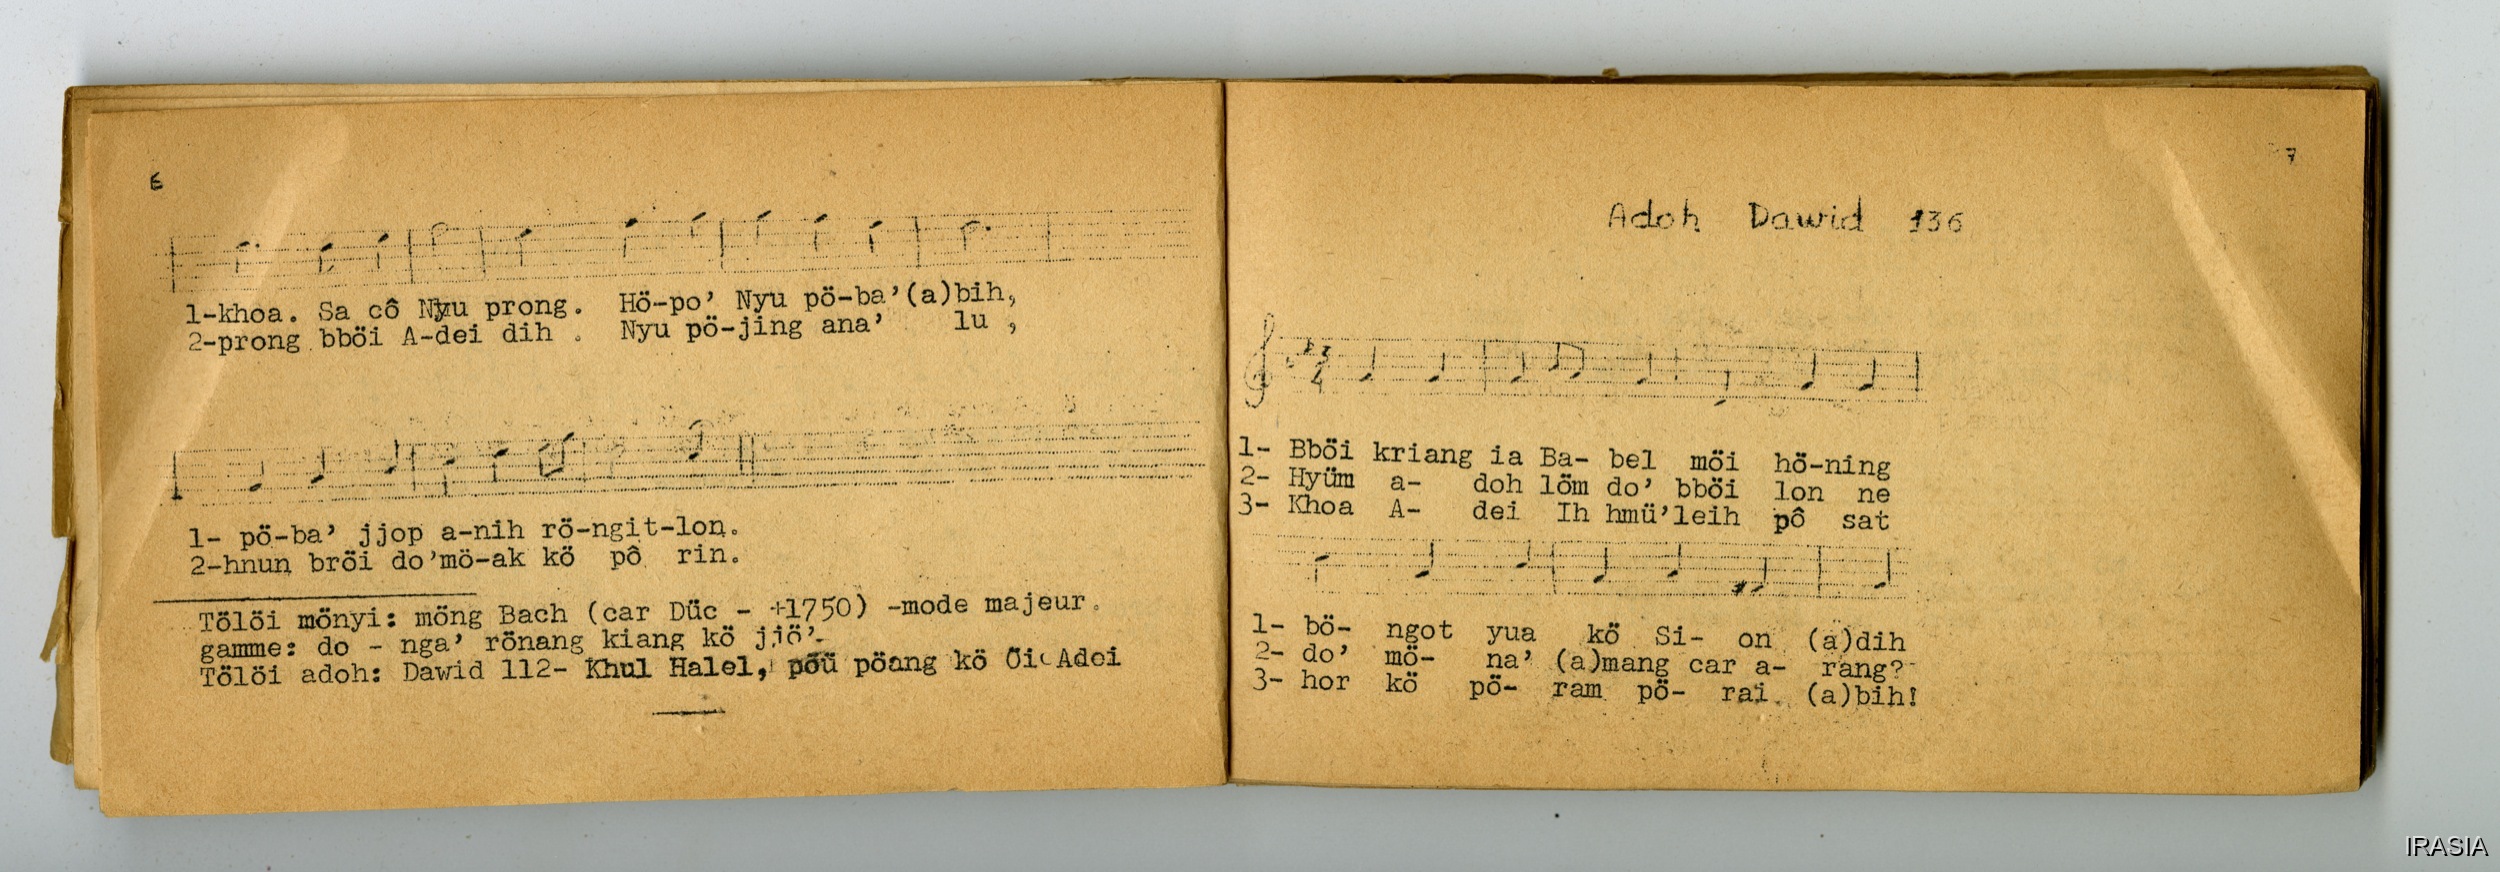 6
1-khoa. Sa cô Nyu prong. Hö-po' Nyu pö-ba'(a)bih,
2-prong bböi A-dei dih . Nyu pö-jing ana' lu ,
1- pö-ba' jjop a-nih rö-ngit-lon.
2-hnun bröi do'mö-ak kö pô rin.
Tölöi mönyi: möng Bach (car Düc - +1750) -mode majeur.
gamme: do - nga' rönang kiang kö jjö'-
Tölöi adoh: Dawid 112- Khul Halel, pöü pöang kö Öi Adei
7
Adoh Dawid 136
3
4
1- Bböi kriang ia Ba- bel möi hö-ning
2- Hyüm a- doh löm do' bböi lon ne
3- Khoa A- dei Ih hmü'leih pô sat
1- bö- ngot yua kö Si- on (a)dih
2- do' mö- na' (a)mang car a- rang?
3- hor kö pö- ram pö- rai (a)bih!
IRASIA